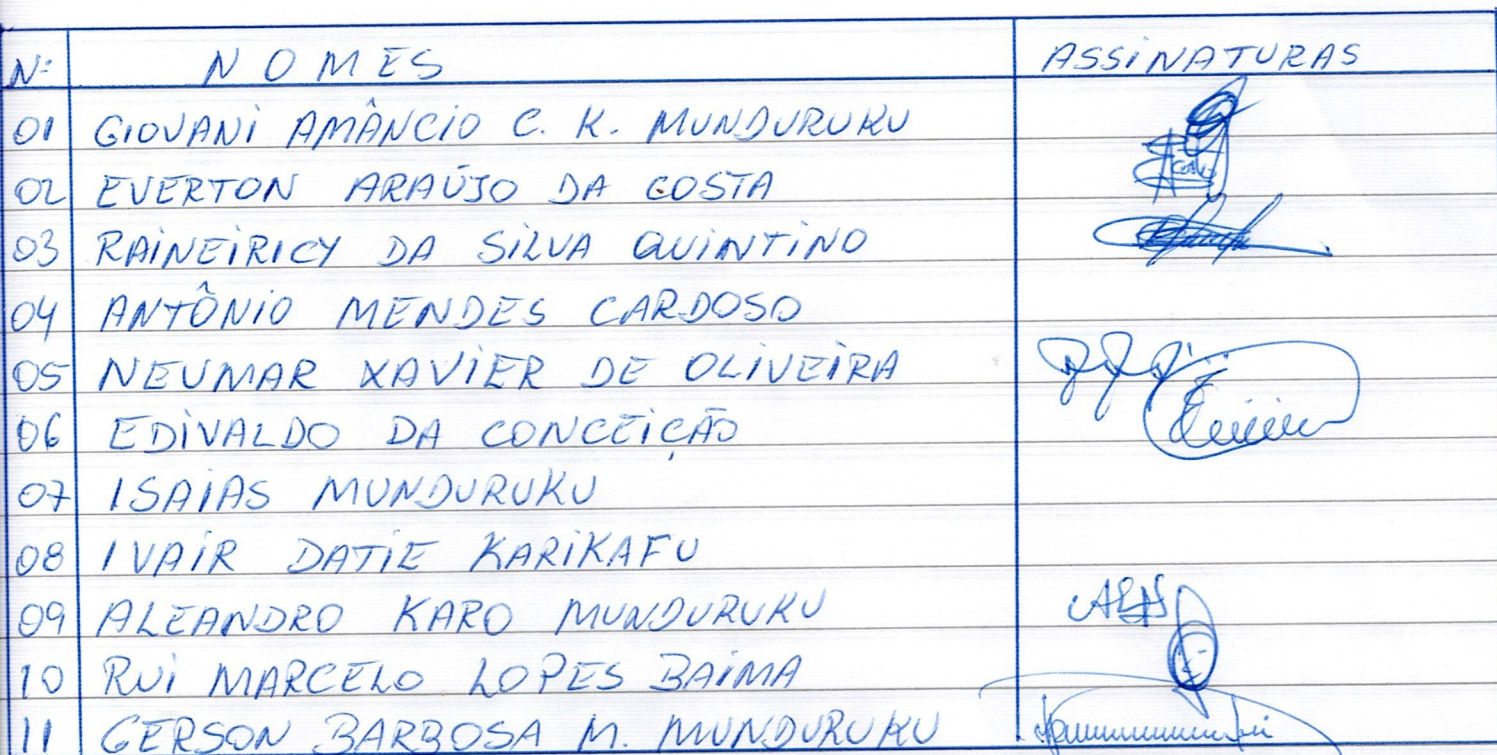 Nº NOMES ASSINATURAS
01 GIOVANI AMÂNCIO C. K. MUNDURUKU
02 EVERTON ARAÚJO DA COSTA
03 RAINEIRICY DA SILVA QUINTINO
04 ANTÔNIO MENDES CARDOSO
05 NEUMAR XAVIER DE OLIVEIRA
06 EDIVALDO DA CONCEIÇÃO
07 ISAIAS MUNDURUKU
08 IVAIR DATIE KARIKAFU
09 ALEANDRO KARO MUNDURUKU
10 RUI MARCELO LOPES BAIMA
11 GERSON BARBOSA M. MUNDURUKU